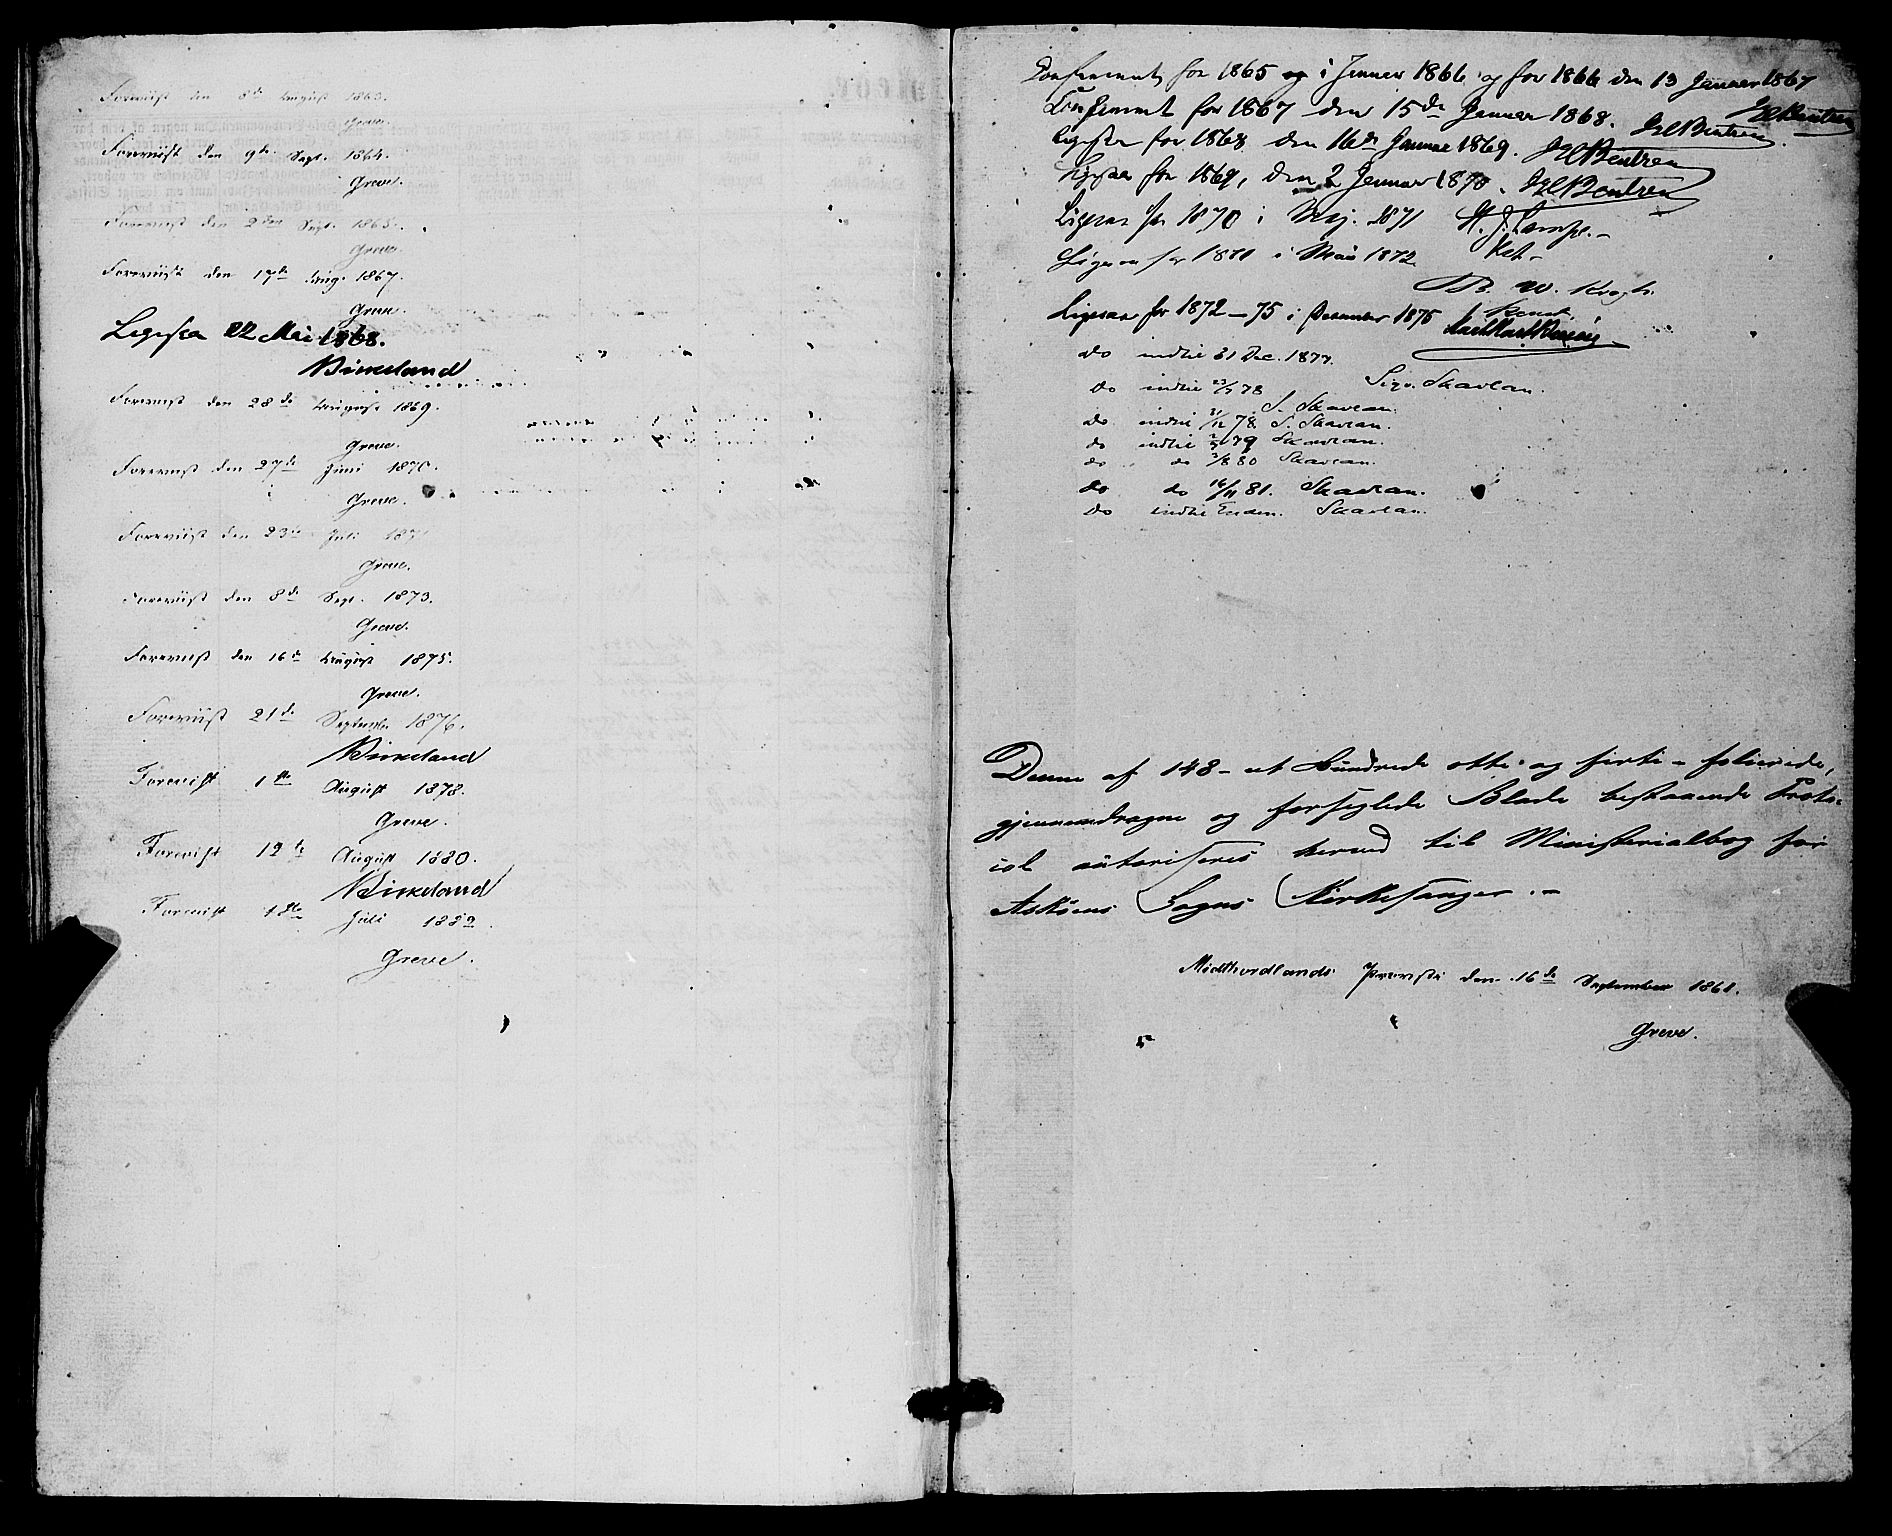 Foreviist den 8de August 1863.
Greve.
Foreviist den 9de Sept. 1864.
Greve.
Foreviist den 2den Sept. 1865.
Greve.
Foreviist den 17de Aug. 1867.
Greve.
Ligesaa 22 Mai 1868.
Birkeland
Foreviist den 28de August 1869.
Greve.
Foreviist den 27de Juni 1870.
Greve.
Foreviist den 23de Juli 187
Greve.
Foreviist den 8de Sept. 1873.
Greve.
Foreviist den 16de August 1875.
Greve.
Foreviist 21de September 1876.
Birkeland
Forevist 1ste August 1878.
Greve.
Forevist 12te August 1880.
Birkeland
Forevist 1ste Juli 1882.
Greve.
Confereret for 1865 og i Januar 1866 og for 1866 den 13 Januar 1867
Confereret for 1867 den 15de Januar 1868. Bentzen
ligesaa for 1868 den 16de Januar 1869. Bentzen
Ligesaa for 1869, den 2 Januar 1870. Bentzen
Ligesaa for 1870 i Maj. 1871
Ligesaa for 1871 i Mai 1872
W. Krogh.
Ligesaa for 1872-75 i December 1875
do indtil 31 Dec. 1877.
Sigv. Skavlan.
do indtil 78
S. Skavlan.
do indtil 31/12 78 S. Skavlan.
do indtil 79 Skavlan.
do do 2/8 80 Skavlan.
do do 16/11 81. Skavlan.
do indtil Enden. Skavlan.
Denne af 148 - et Hundrede otte og firti - folierede,
gjennemdragne og forseglede Blade bestaaende Proto-
col autoriseres herved til Ministerialbog for
Askøens Sogns Kirkesanger.-
Midthordlands Provsti den 16de September 1861.
Greve.